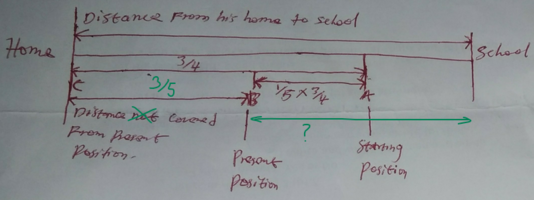 Distance From his home to school
Home
School
3/4
3/5
1/5 x 3/4
C
B
A
Distance not covered
From Present
Position.
?
Present
Position
Starting
Position